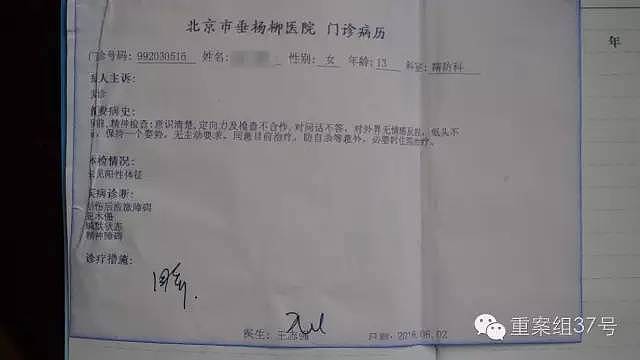 年
北京市垂杨柳医院 门诊病历
门诊号码: 992030515 姓名: 性别: 女 年龄: 13 科室: 精防科
病人主诉:
复诊
简要病史:
精神检查:意识清楚,定向力及检查不合作,对问话不答,对外界无情感反应,低头不
保持一个姿势,无主动要求,同意目前治疗,防自杀等意外,必要时住院治疗。
体检情况:
未见阳性体征
疾病诊断:
创伤后应激障碍
亚木僵
缄默状态
精神障碍
诊疗措施:
医生: 日期: 2016.06.02
重案组37号